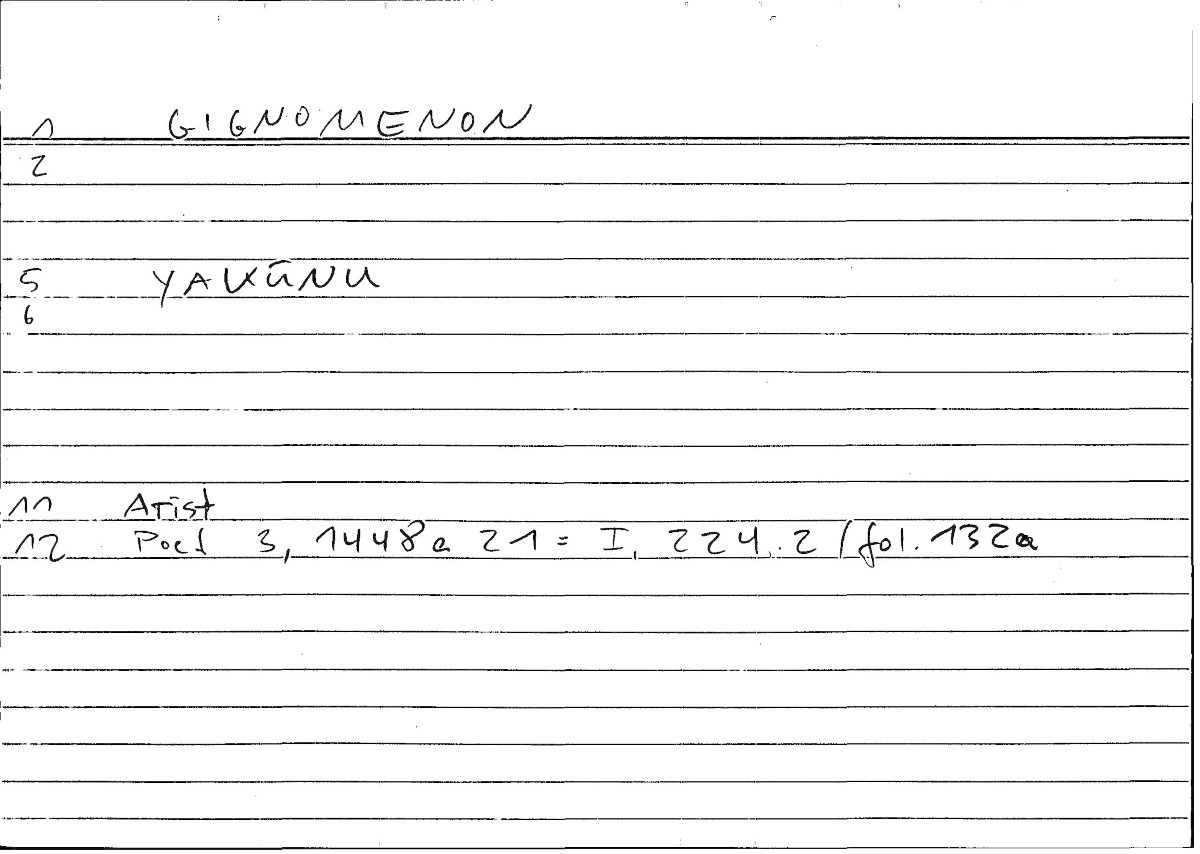 1 GIGNOMENON
2
5 YAKŪNU
6
11 Arist
12 Poet 3, 1448a 21 = I, 224.2 / fol. 132a